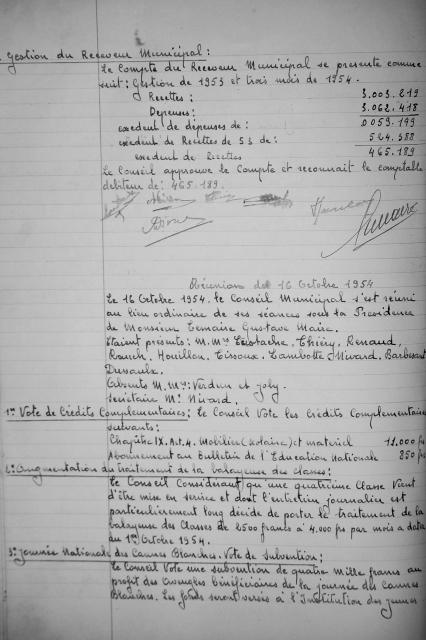 Gestion du Receveur Municipal:
Le Compte du Receveur Municipal se presente comme
suit: Gestion de 1953 et trois mois de 1954.
Recettes: 3.003.219
Depenses: 3.062.418
excedent de depenses de: 0059.199
excedent de Recettes de 53 de: 524.388
excedent de Recettes 465.189
Le Conseil approuve le Compte et reconnait le comptable
debiteur de: 465.189.
Réunion du 16 Octobre 1954
Le 16 Octobre 1954. le Conseil Municipal s'est réuni
au lieu ordinaire de ses séances sous la Présidence
de Monsieur Lemaire Gustave Maire.
Etaient présents: M.Mrs Eustache, Thiéry, Renaud,
Rouch, Houillon, Tissoux, Lambotte, Nivard, Barbesant
Dusaulx.
Absents M.Mrs: Verdun et Joly.
Secrétaire Mr Nivard.
1er Vote de Crédits Complémentaires: Le Conseil Vote les Crédits Complémentaires
suivants:
Chapitre IX. Art.4. Mobilier (scolaire) et matériel 11.000 frs
Abonnement au bulletin de l'Education Nationale 250 frs
2e Augmentation du traitement de la balayeuse des classes:
Le Conseil Considérant qu'une quatrième Classe Vient
d'être mise en service et dont l'entretien journalier est
particulièrement long décide de porter le traitement de la
balayeuse des Classes de 2500 francs à 4.000 frs par mois à dater
du 1er Octobre 1954.
3e Journée Nationale des Cannes Blanches. Vote de Subvention:
Le Conseil Vote une subvention de quatre mille francs au
profit des aveugles bénéficiaires de la journée des Cannes
Blanches. Les fonds seront versés à l'Institution des jeunes